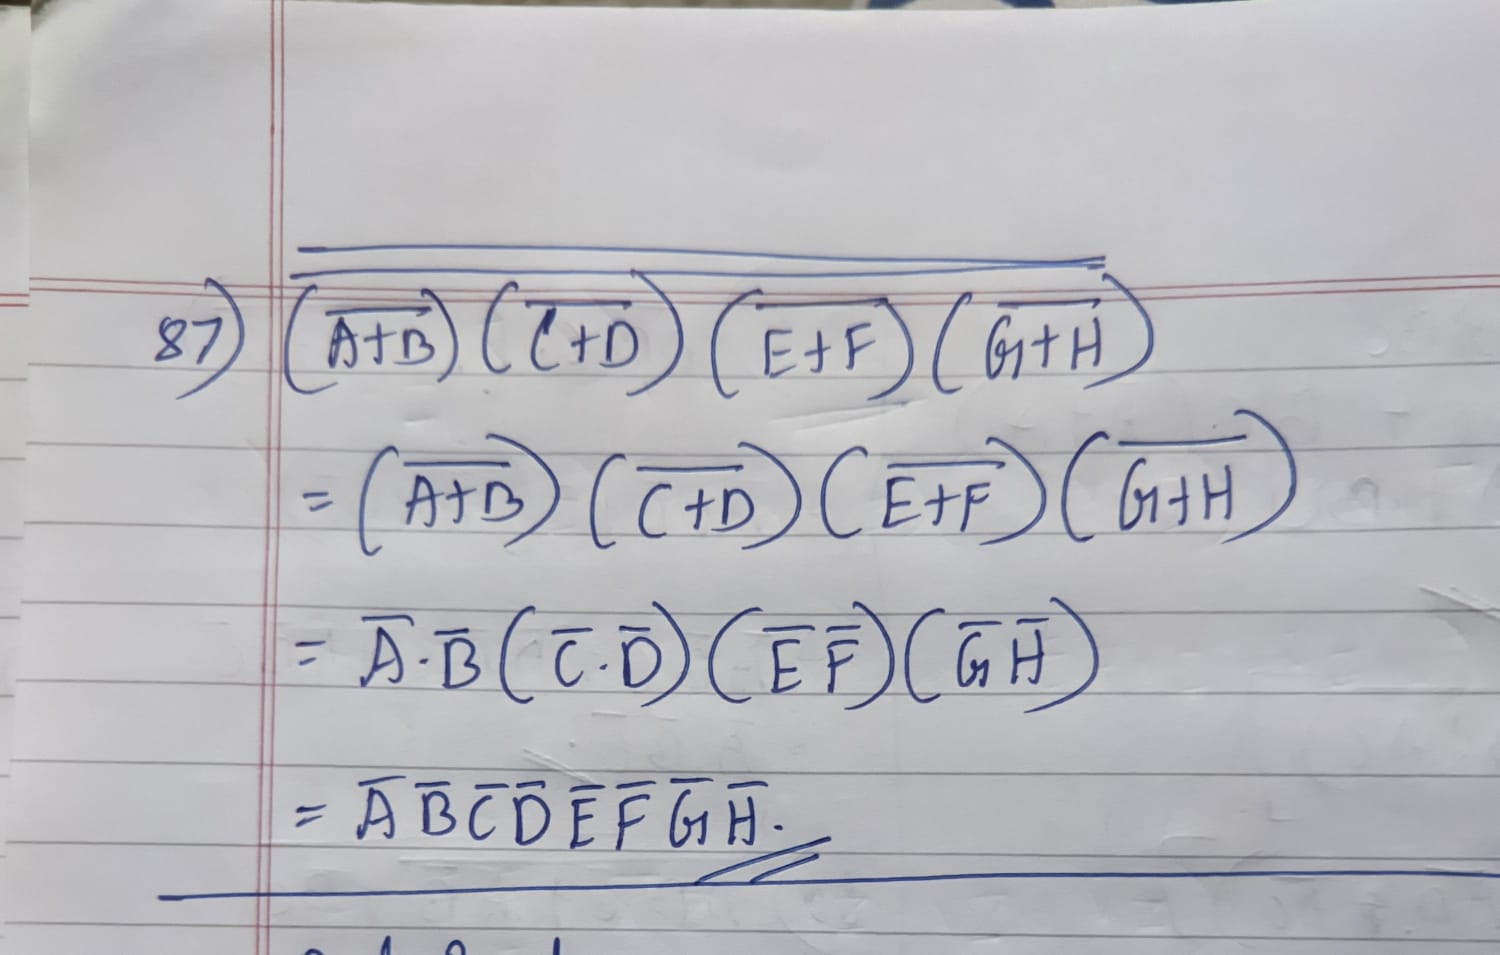 87) $\overline{\overline{(\overline{A+B})(\overline{C+D})(\overline{E+F})(\overline{G+H})}}$
= $(\overline{A+B})(\overline{C+D})(\overline{E+F})(\overline{G+H})$
= $\overline{A}.\overline{B}(\overline{C}.\overline{D})(\overline{E}\,\overline{F})(\overline{G}\,\overline{H})$
= $\overline{A}\,\overline{B}\,\overline{C}\,\overline{D}\,\overline{E}\,\overline{F}\,\overline{G}\,\overline{H}.$